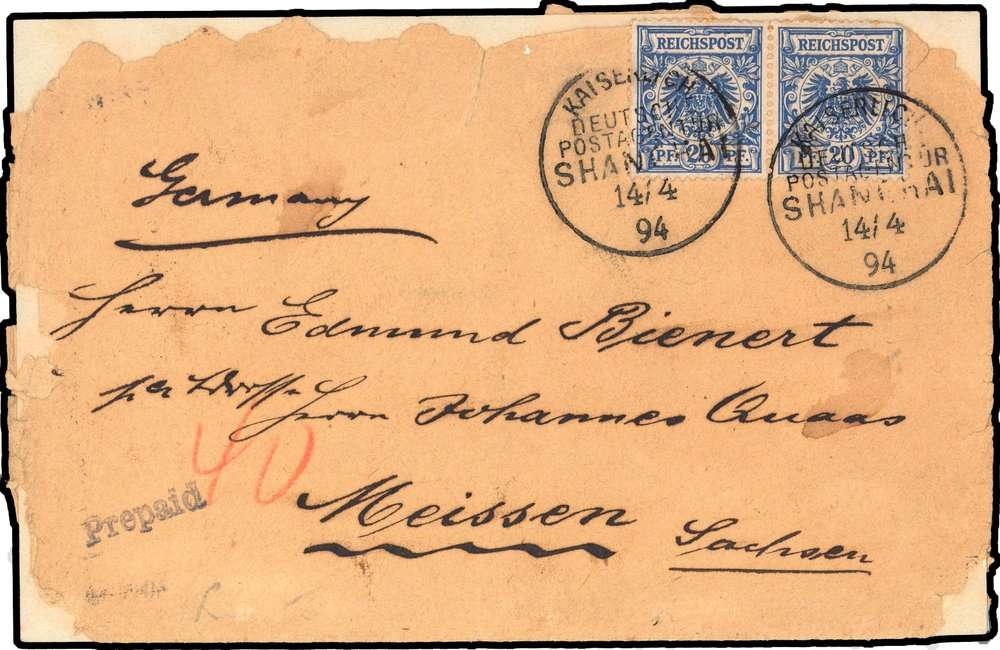 REICHSPOST REICHSPOST
PF. 20 PF. PF. 20 PF.
KAISERLICH
DEUTSCHE
POSTAGENTUR
SHANGHAI
14/4
94
KAISERLICH
DEUTSCHE
POSTAGENTUR
SHANGHAI
14/4
94
Germany
Herrn Edmund Bienert
per Adresse Herrn Johannes Quaas
40
Prepaid
Meissen
Sachsen